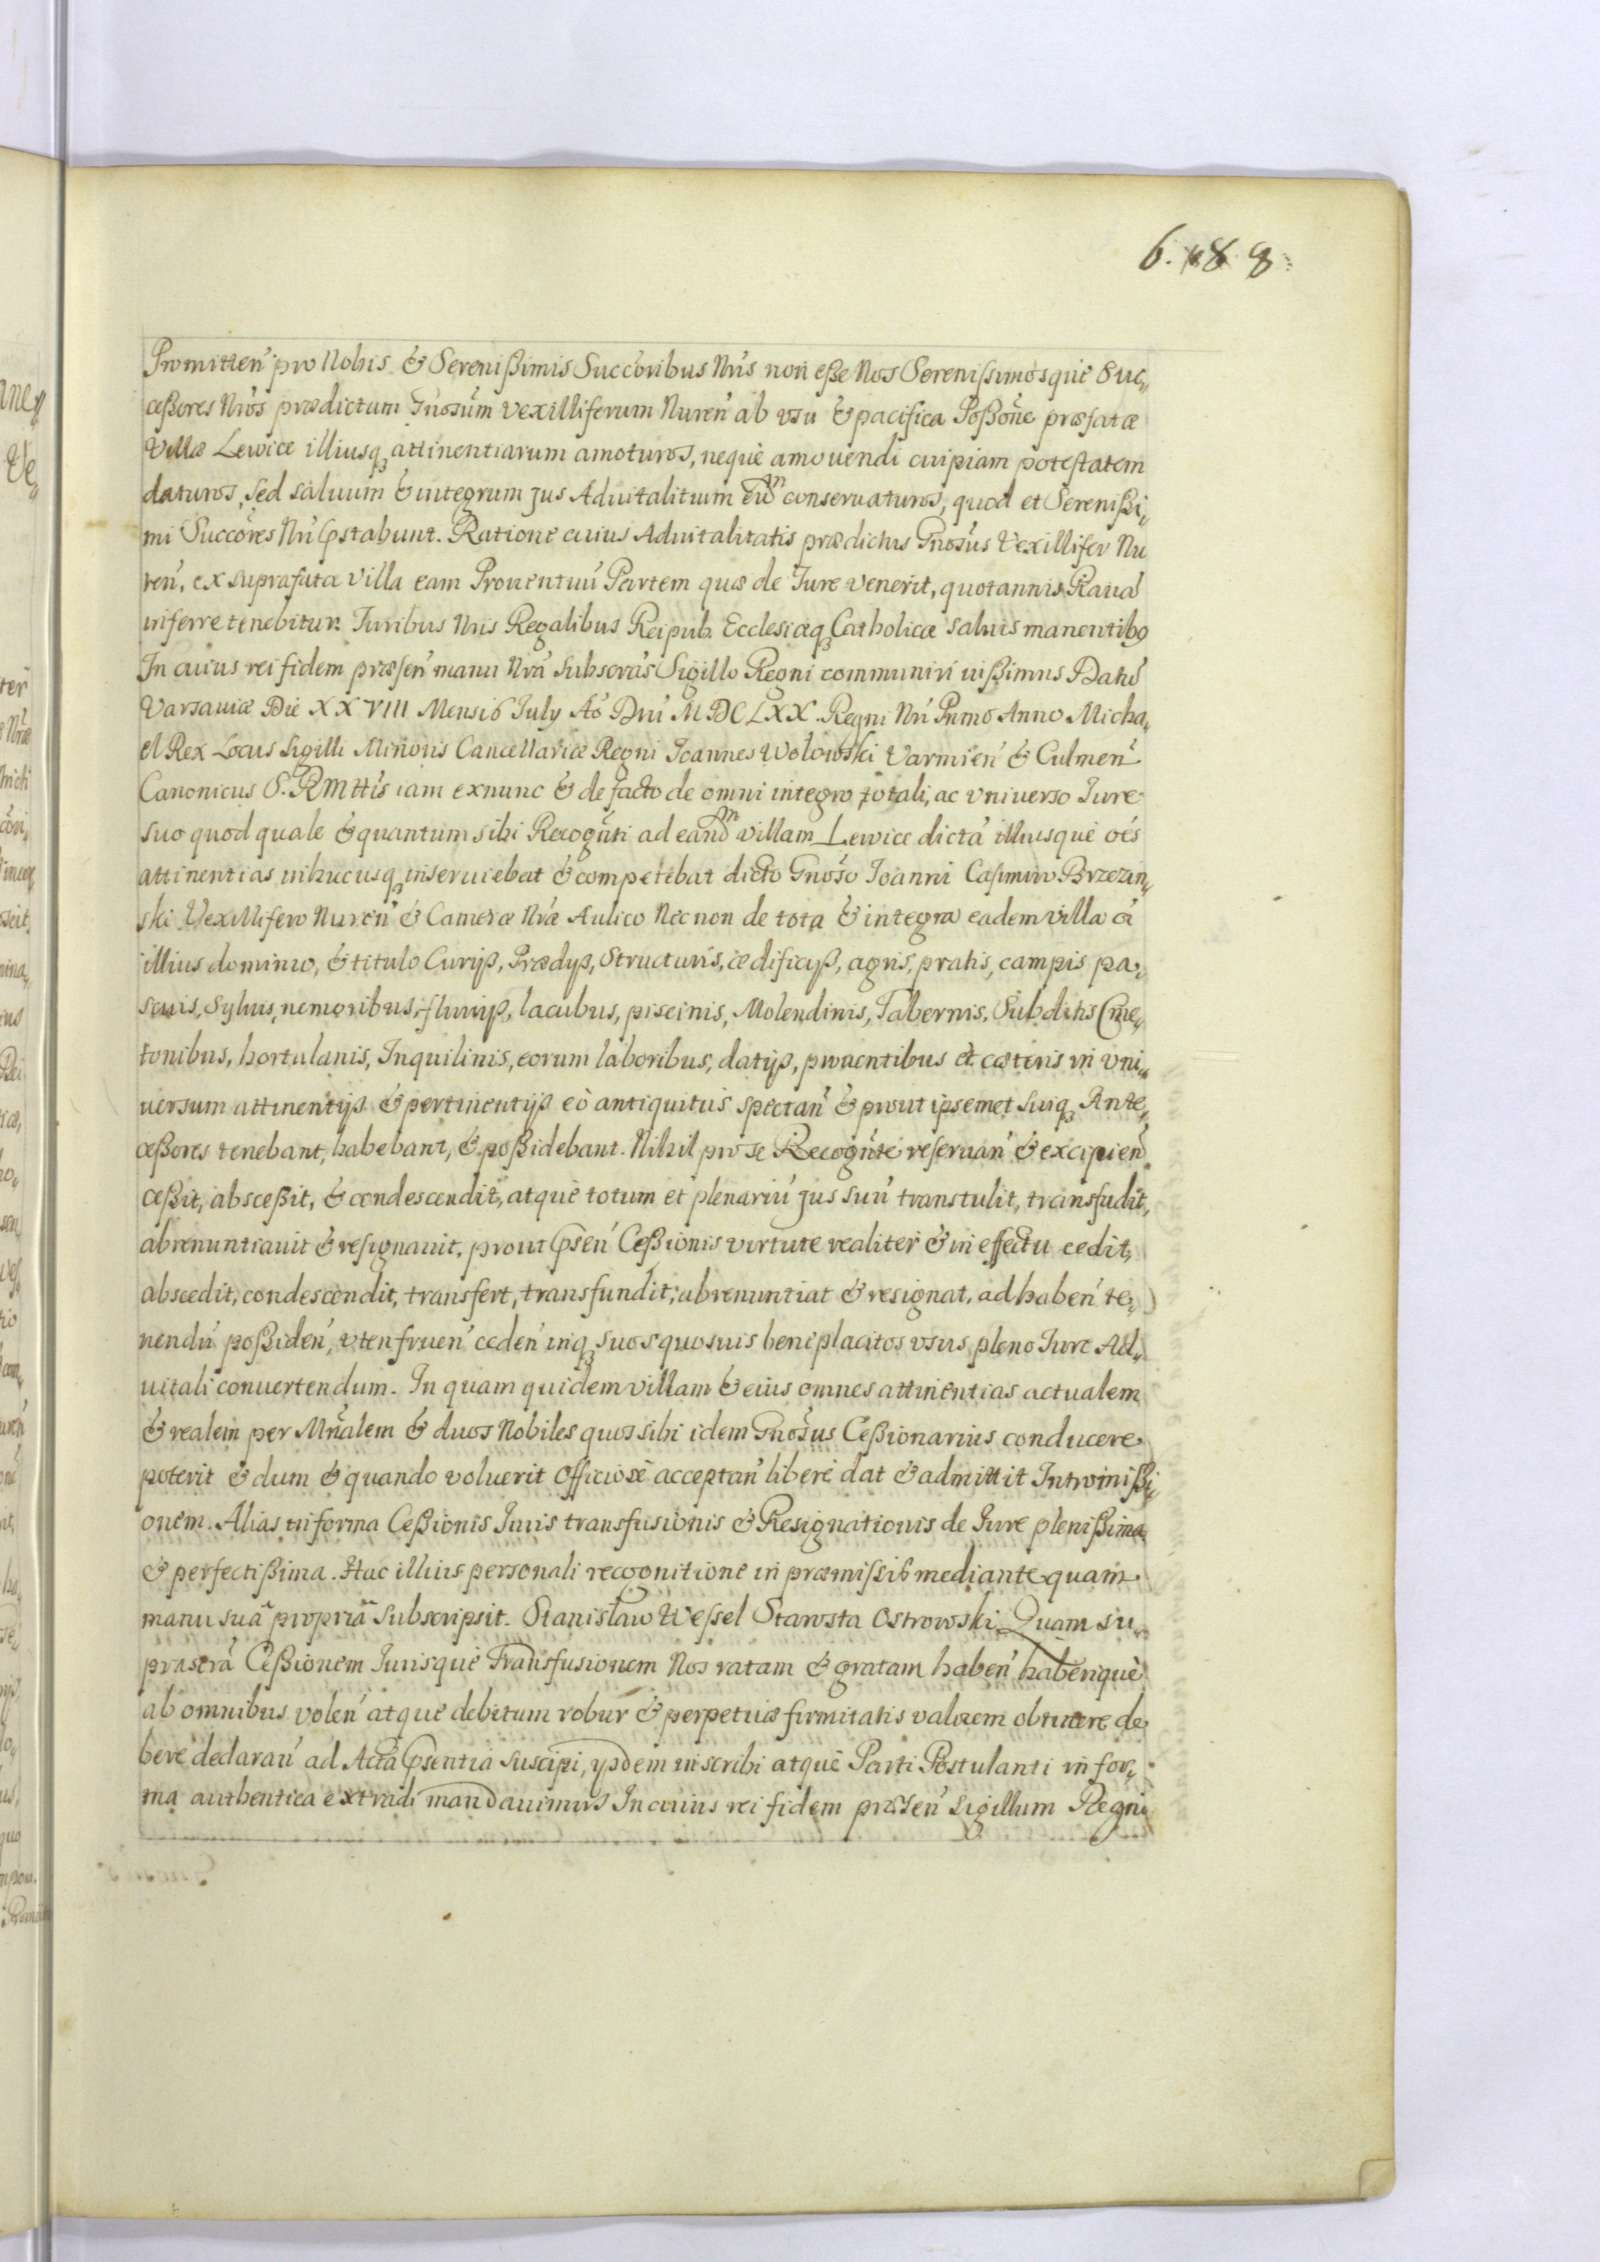 6. 8 8
Promitten̄ pro Nobis & Serenißimis Succōribus Nrīs non eße Nos Serenissimosque Suc„
ceßores Nrōs prædictum Gnosūm Vexilliferum Nuren̄ ab vsu & pacifica Poßōne præfatæ
Villæ Lewice illiusq; attinentiarum amoturos, neque amouendi cuipiam potestatem
daturos, sed saluum & integrum jus Aduitalitium eidm conseruaturos, quod et Serenißi„
mi Succōres Nrī pstabunt. Ratione cuius Aduitalitatis prædictus Gnosūs Vexillifer Nu
ren̄, ex suprafata villa eam Prouentuū Partem quæ de Jure venerit, quotannis Rauā
inferre tenebitur. Juribus Nrīs Regalibus Reipub. Ecclesiæq; Catholicæ saluis manentibg
In cuius rei fidem præsen̄ manu Nrā subscrās Sigillo Regni communiri iußimus Datū
Varsauiæ Die XXVIII Mensis July Aō Dnī MDCLXX. Regni Nrī Primo Anno Micha„
el Rex Locus Sigilli Minoris Cancellariæ Regni Joannes Wołowski Varmien̄ & Culmen̄
Canonicus S. RMttīs iam exnunc & de facto de omni integro totali, ac vniuerso Jure
suo quod quale & quantum sibi Recognti ad eandm villam Lewice dictā illiusque oēs
attinentias inhucusq; inseruiebat & competebat dicto Gnosō Joanni Casimiro Brzezin„
ski Vexillifero Nuren̄ & Cameræ Nræ Aulico Nec non de tota & integra eadem villa ā
illius dominio, & titulo Curijs, Prædijs, Structuris, ædificijs, agris, pratis, campis pa„
scuis, syluis, nemoribus, fluuijs, lacubus, piscinis, Molendinis, Tabernis, Subditis Cme„
tonibus, hortulanis, Inquilinis, eorum laboribus, datijs, prouentibus et cæteris in vni„
uersum attinentijs & pertinentijs eò antiquitus spectan̄ & prout ipsemet suiq; Ante„
ceßores tenebant, habebant, & poßidebant. Nihil pro se Recognte reseruan̄ & excipien̄
ceßit, absceßit, & condescendit, atque totum et plenariū jus suū transtulit, transfudit,
abrenuntiauit & resignauit, prout psen̄ Ceßionis virtute realiter & in effectu cedit,
abscedit, condescendit, transfert, transfundit, abrenuntiat & resignat, ad haben̄ te„
nendū poßiden̄, vten fruen̄ ceden̄ inq; suos quosuis beneplacitos vsus pleno Jure Ad„
uitali conuertendum. In quam quidem villam & eius omnes attinentias actualem
& realem per Mnālem & duos Nobiles quos sibi idem Gnosūs Ceßionarius conducere
poterit & dum & quando voluerit Officiosè acceptan̄ liberè dat & admittit Intromißi„
onem. Alias in forma Ceßionis Juris transfusionis & Resignationis de Jure plenißima
& perfectißima. Hac illius personali recognitione in præmissis mediante quam
manu suâ propriâ subscripsit. Stanisław Wessel Starosta Ostrowski. Quam su„
prascrā Ceßionem Jurisque Transfusionem Nos ratam & gratam haben̄ haberique
ab omnibus volen̄ atque debitum robur & perpetuæ firmitatis valorem obtinere de„
bere declaran̄ ad Acta psentia suscipi, ijsdem inscribi atque Parti Postulanti in for„
ma authentica extradi mandauimus In cuius rei fidem præsen̄ sigillum Regni